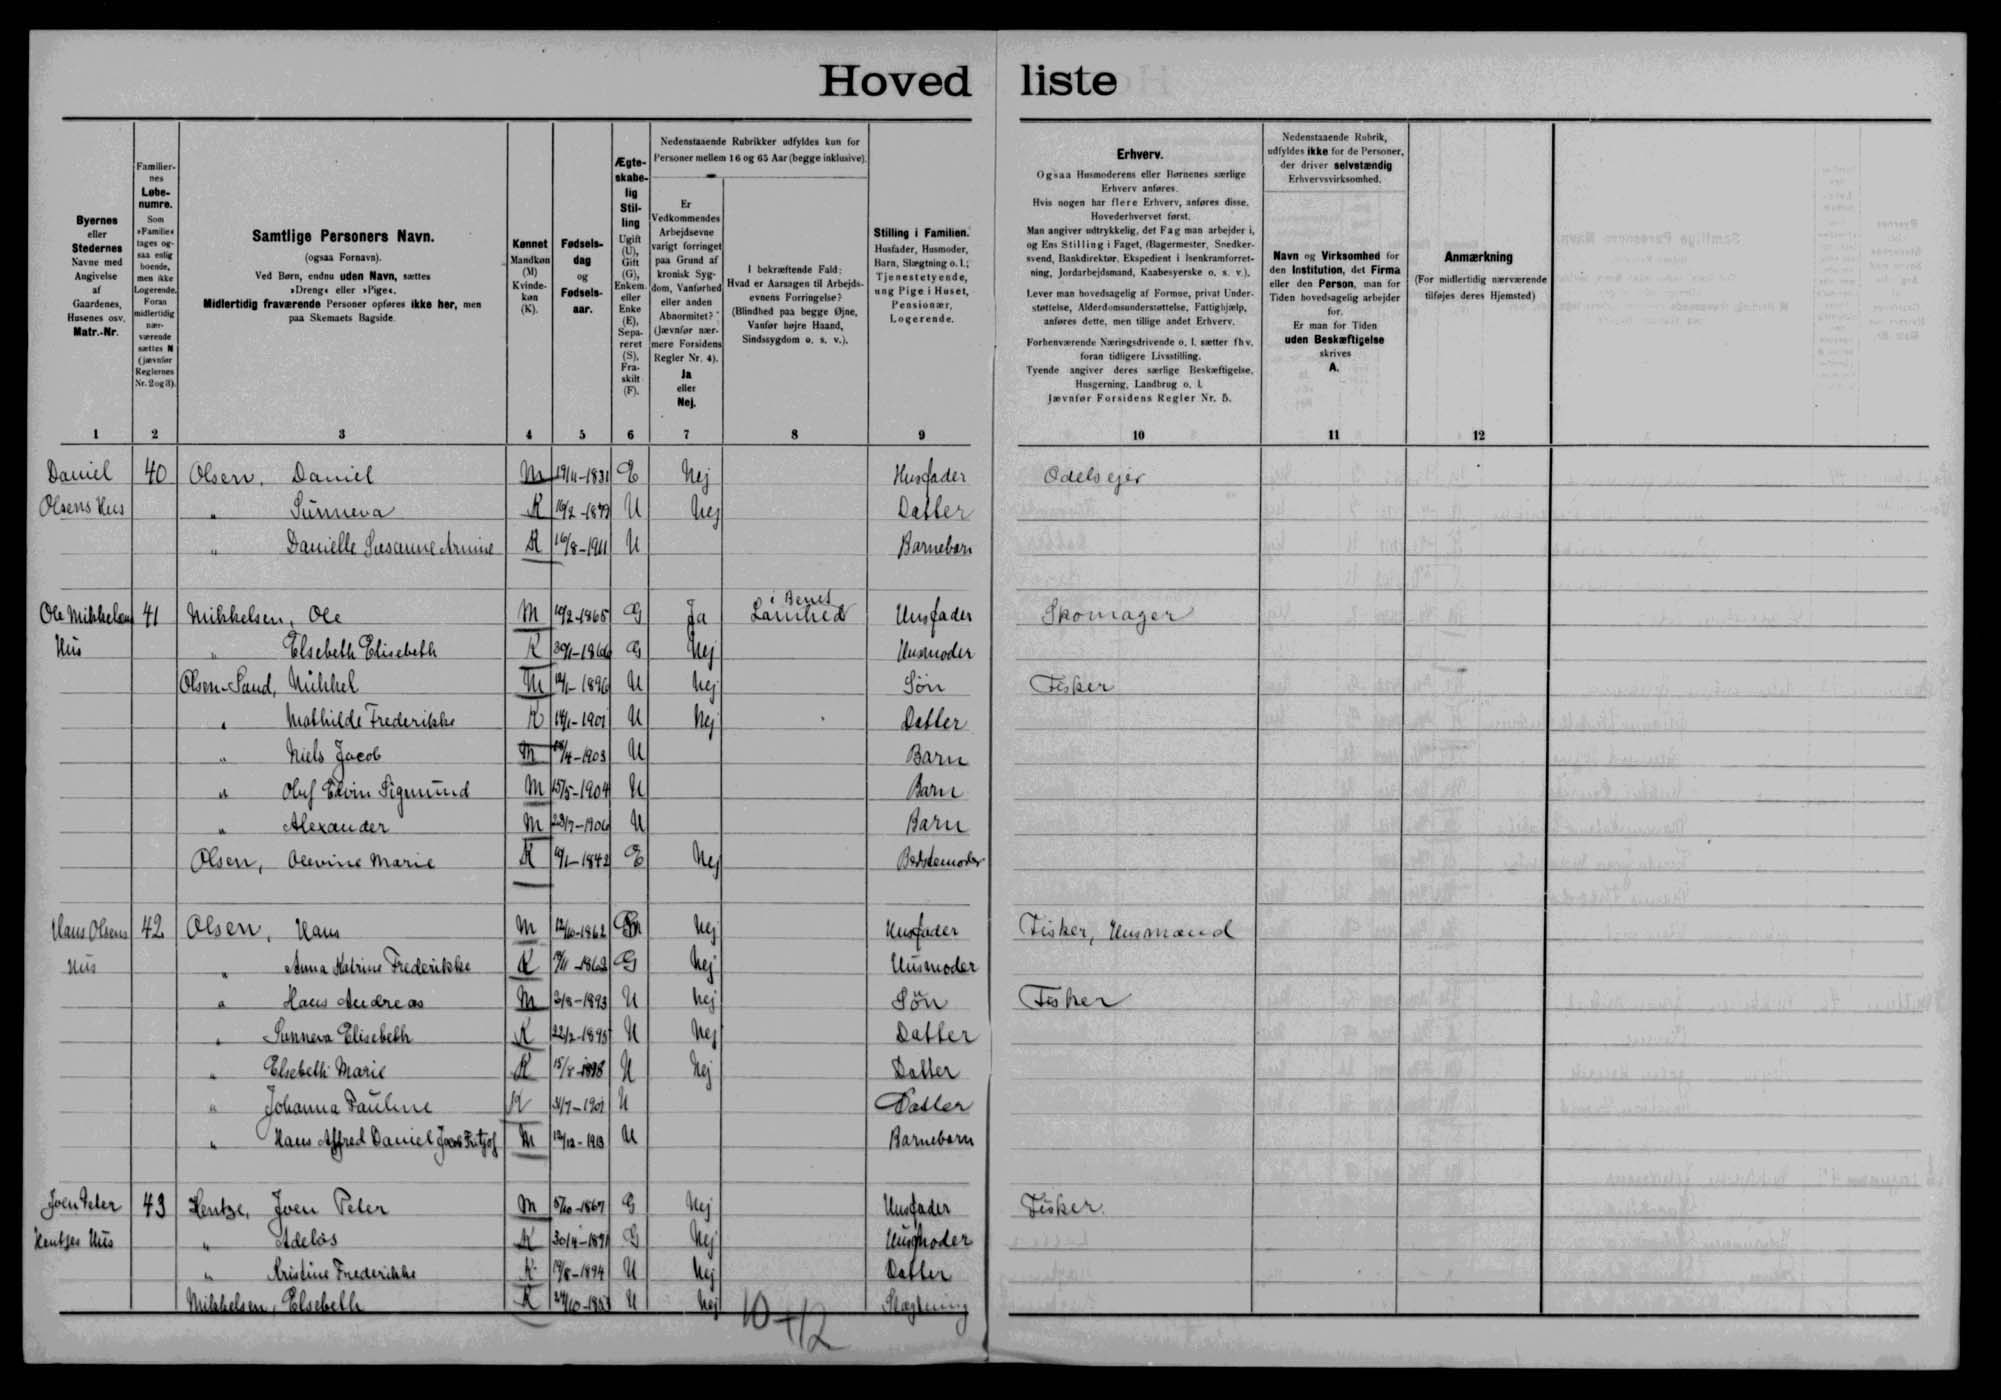 Hoved liste
Byernes
eller
Stedernes
Navne med
Angivelse
af
Gaardenes,
Husenes osv.
Matr.-Nr.
Familier-
nes
Løbe-
numre.
Som
»Familie«
tages og-
saa enlig
boende,
men ikke
Logerende.
Foran
midlertidig
nær-
værende
sættes N
(jævnfør
Reglernes
Nr. 2 og 3).
Samtlige Personers Navn.
(ogsaa Fornavn).
Ved Børn, endnu uden Navn, sættes
»Dreng« eller »Pige«.
Midlertidig fraværende Personer opføres ikke her, men
paa Skemaets Bagside.
Kønnet
Mandkøn
(M)
Kvinde-
køn
(K).
Fødsels-
dag
og
Fødsels-
aar.
Ægte-
skabe-
lig
Stil-
ling
Ugift
(U),
Gift
(G),
Enkem.
eller
Enke
(E),
Sepa-
reret
(S),
Fra-
skilt
(F).
Nedenstaaende Rubrikker udfyldes kun for
Personer mellem 16 og 65 Aar (begge inklusive).
Er
Vedkommendes
Arbejdsevne
varigt forringet
paa Grund af
kronisk Syg-
dom, Vanførhed
eller anden
Abnormitet?
(Jævnfør nær-
mere Forsidens
Regler Nr. 4).
Ja
eller
Nej.
I bekræftende Fald:
Hvad er Aarsagen til Arbejds-
evnens Forringelse?
(Blindhed paa begge Øjne,
Vanfør højre Haand,
Sindssygdom o. s. v.).
Stilling i Familien.
Husfader, Husmoder,
Barn, Slægtning o. l.;
Tjenestetyende,
ung Pige i Huset,
Pensionær,
Logerende.
Erhverv.
Ogsaa Husmoderens eller Børnenes særlige
Erhverv anføres.
Hvis nogen har flere Erhverv, anføres disse,
Hovederhvervet først.
Man angiver udtrykkelig, det Fag man arbejder i,
og Ens Stilling i Faget, (Bagermester, Snedker-
svend, Bankdirektør, Ekspedient i Isenkramforret-
ning, Jordarbejdsmand, Kaabesyerske o. s. v.).
Lever man hovedsagelig af Formue, privat Under-
støttelse, Alderdomsunderstøttelse, Fattighjælp,
anføres dette, men tillige andet Erhverv.
Forhenværende Næringsdrivende o. l. sætter fhv.
foran tidligere Livsstilling.
Tyende angiver deres særlige Beskæftigelse,
Husgerning, Landbrug o. l.
Jævnfør Forsidens Regler Nr. 5.
Nedenstaaende Rubrik,
udfyldes ikke for de Personer,
der driver selvstændig
Erhvervsvirksomhed.
Navn og Virksomhed for
den Institution, det Firma
eller den Person, man for
Tiden hovedsagelig arbejder
for.
Er man for Tiden
uden Beskæftigelse
skrives
A.
Anmærkning
(For midlertidig nærværende
tilføjes deres Hjemsted)
1 2 3 4 5 6 7 8 9 10 11 12
Daniel 40 Olsen, Daniel M 19/11-1831 E Nej Husfader Odelsejer
Olsens Hus " Sünneva K 16/2-1879 U Nej Datter
" Danielle Susanne Armine K 16/8-1911 U Barnebarn
Ole Mikkelsens 41 Mikkelsen, Ole M 10/2-1865 G Ja Lamhed i Benet Husfader Skomager
Hus " Elsebeth Elisebeth K 30/1-1866 G Nej Husmoder
Olsen-Sand, Mikkel M 1896 U Nej Søn Fisker
" Mathilde Frederikke K 14/1-1901 U Nej Datter
" Niels Jacob M 1903 U Barn
" Oluf Edvin Sigmund M 15/5-1904 U Barn
" Alexander M 23/7-1906 U Barn
Olsen, Olevine Marie K 1842 E Nej Bedstemoder
Hans Olsens 42 Olsen, Hans M 12/10-1862 G Nej Husfader Fisker, Husmand
Hus " Anna Katrine Frederikke K G Nej Husmoder
" Hans Andreas M 3/8-1893 U Nej Søn Fisker
" Sunneva Elisebeth K 22/2-1895 U Nej Datter
" Elsebeth Marie K 15/8-1898 U Nej Datter
" Johanna Pauline K 31/7-1901 U Datter
" Hans Alfred Daniel Jacob Fritjof M 12/12-1913 U Barnebarn
Joen Peter 43 Hentze, Joen Peter M 5/10-1867 G Nej Husfader Fisker.
Hentzes Hus " Adelås K G Nej Husmoder
" Kristine Frederikke K 19/8-1894 U Nej Datter
Mikkelsen, Elsebeth K U Nej Slægtning
10+12